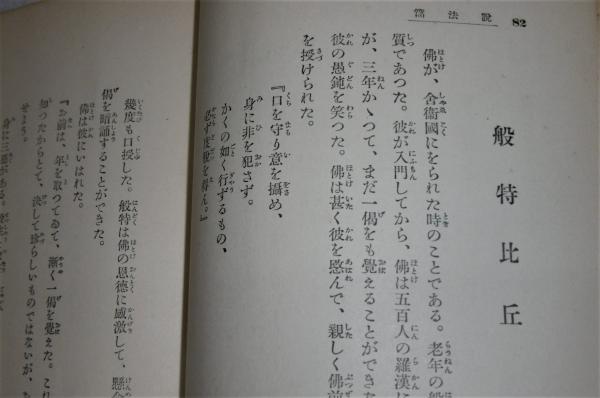 82
説法篇
般特比丘
佛が、舍衞國にをられた時のことである。老年の般
質であつた。彼が入門してから、佛は五百人の羅漢に
が、三年かゝつて、まだ一偈をも覺えることができた
彼の愚鈍を笑つた。佛は甚く彼を愍んで、親しく佛前
を授けられた。
『口を守り意を攝め、
身に非を犯さず。
かくの如く行ずるもの、
必ず度脫を得ん。』
幾度も口授した。般特は佛の恩德に感激して、懸命
偈を暗誦することができた。
佛は彼にいはれた。
『お前は、年を取つてゐて、漸く一偈を覺えた。これ
知つたからとて、決して珍らしいものではないが、
せよう。
身に三惡がある。